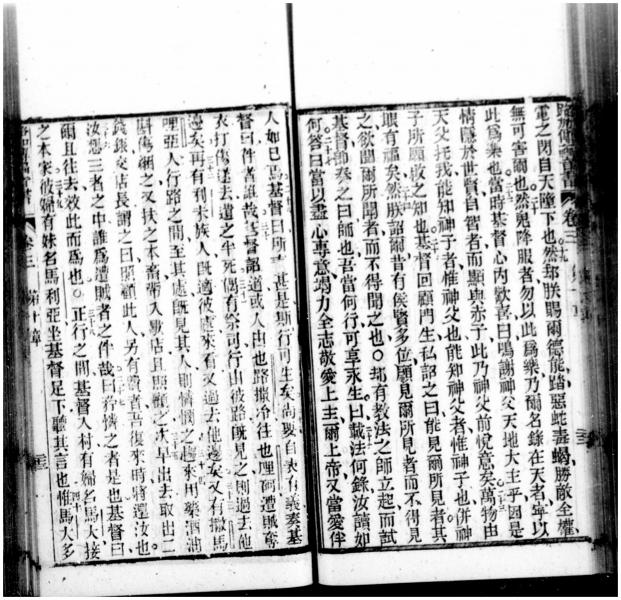 路加傳福音書 卷三
電之閃自天墮下也然却朕賜爾德能踏惡蛇壽蝎勝敵全權
無可害爾也然鬼降服者勿以此爲樂乃爾名錄在天者寧以
此爲樂也當時基督心內歡喜曰鳴謝神父天地大主乎因是
情隱於世賢自智者而顯與赤子此乃神父前悅意矣萬物由
天父托我能知神子者惟神父也能知神父者惟神子也併神
子所願啟之知也基督回顧門生私詔之曰能見爾所見者其
眼有福矣然朕詔爾昔有侯賢多位願見爾所見者而不得見
之欲聞爾所聞者而不得聞之也〇却有教法之師立起而試
基督卽奏之曰師也吾當何行可享永生曰載法何錄汝讀如
何答曰當以盡心專意竭力全志敬愛上主爾上帝又當愛伴
人如己焉基督曰所甚是斯行可生矣尚要自表有義奏基
督曰伴者誰哉基督詔道或人由也路撒冷往也哩訶遭賊奪
衣打傷遂去遺之半死偶有祭司行由彼路旣見之則過去他
邊矣再有利未族人旣適彼處來看又過去他邊矣又有撒馬
哩亞人行路之間至其處旣見其人則憐憫之趨來用藥酒油
斟傷綑之又扶之本畜帶入歇店且照顧之次早出去取出二
錢銀交店長謂之曰照顧此人另有費者吾復來時將還汝也
汝想三者之中誰爲遭賊者之伴哉曰矜憐之者是也基督曰
爾且往去效此而爲也〇正行之間基督入村有婦名馬大接
之本家彼婦有妹名馬利亞坐基督足下聽其言也惟馬大多
卷三 第十章